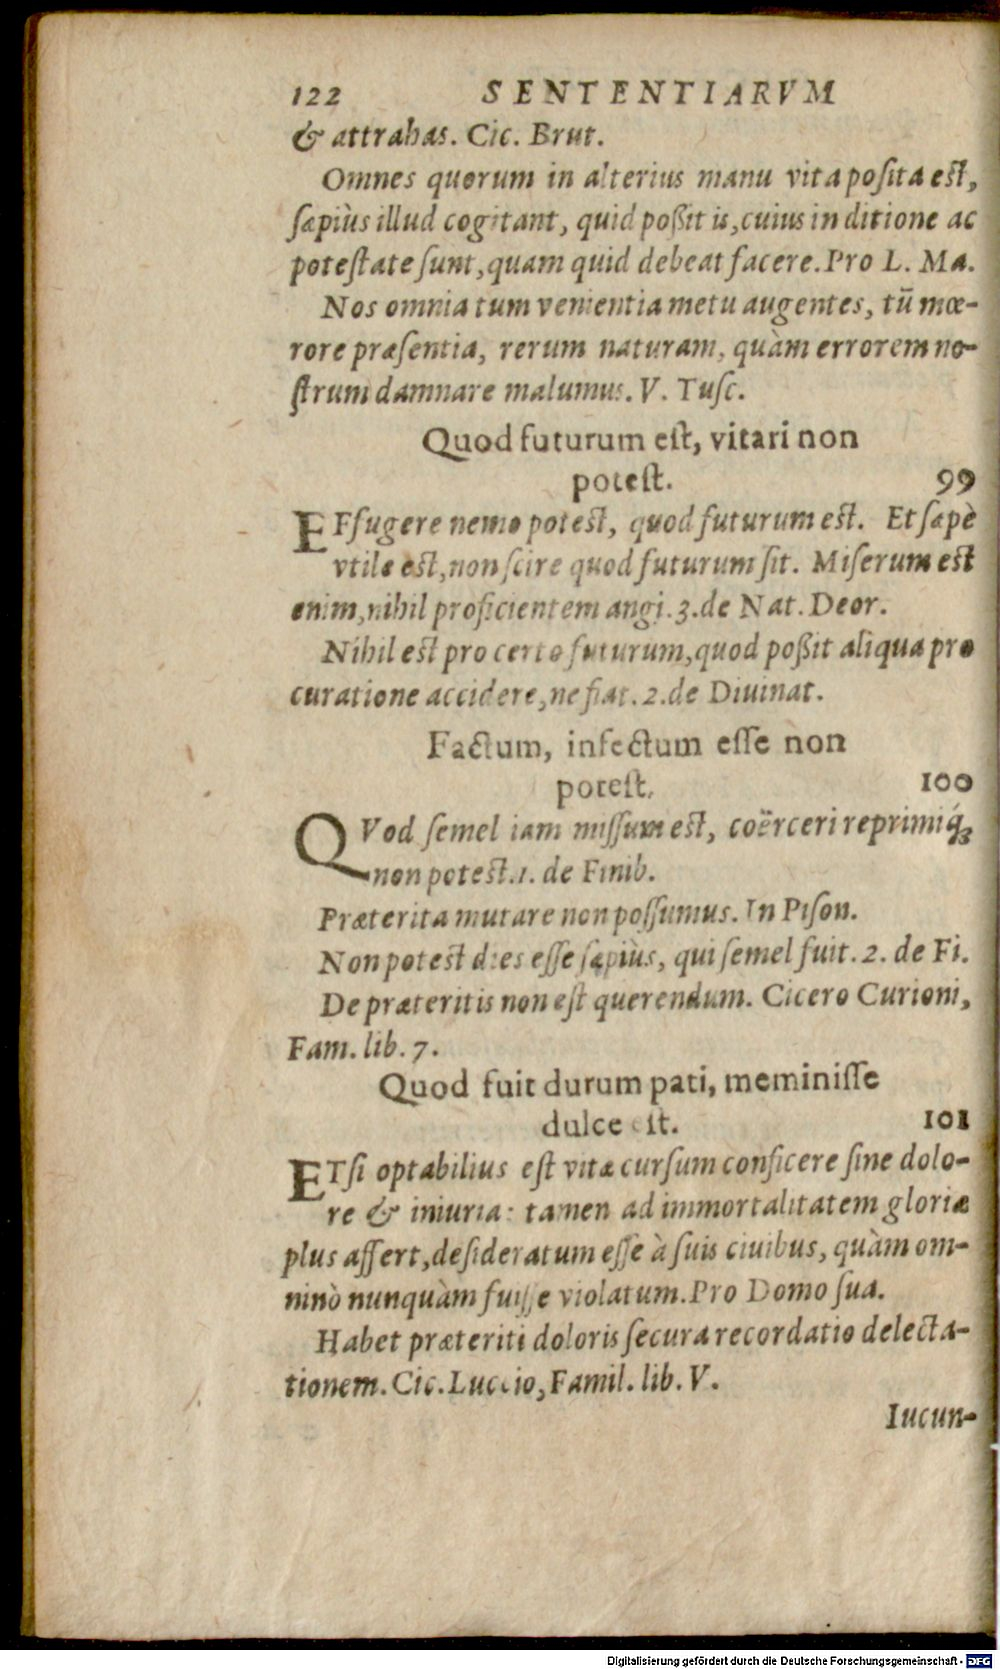 122 SENTENTIARVM
& attrahas. Cic. Brut.
Omnes quorum in alterius manu vita posita est,
sæpiùs illud cogitant, quid poßit is, cuius in ditione ac
potestate sunt, quam quid debeat facere. Pro L. Ma.
Nos omnia tum venientia metu augentes, tū mœ-
rore præsentia, rerum naturam, quàm errorem no-
strum damnare malumus. V. Tusc.
Quod futurum est, vitari non
potest. 99
EFfugere nemo potest, quod futurum est. Et sæpè
vtile est, non scire quod futurum sit. Miserum est
enim, nihil proficientem angi. 3. de Nat. Deor.
Nihil est pro certo futurum, quod poßit aliqua pro
curatione accidere, ne fiat. 2. de Diuinat.
Factum, infectum esse non
potest. 100
QVod semel iam missum est, coërceri reprimiq́;
non potest. 1. de Finib.
Præterita mutare non possumus. In Pison.
Non potest dies esse sæpiùs, qui semel fuit. 2. de Fi.
De præteritis non est querendum. Cicero Curioni,
Fam. lib. 7.
Quod fuit durum pati, meminisse
dulce est. 101
ETsi optabilius est vitæ cursum conficere sine dolo-
re & iniuria: tamen ad immortalitatem gloriæ
plus affert, desideratum esse à suis ciuibus, quàm om-
ninò nunquàm fuisse violatum. Pro Domo sua.
Habet præteriti doloris secura recordatio delecta-
tionem. Cic. Lucceio, Famil. lib. V.
Iucun-
Digitalisierung gefördert durch die Deutsche Forschungsgemeinschaft - DFG